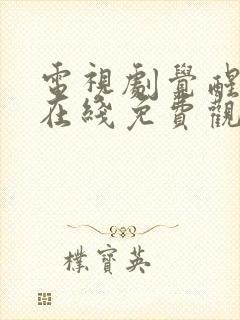 電視劇覺醒
在綫免費觀
樸寶英